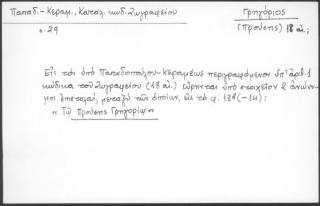 Παπαδ.-Κεραμ., Κατάλ. κωδ. Ζωγραφείου
σ. 29
Γρηγόριος
(Προύσης) 18 αἰ.;
Εἰς τὸν ὑπὸ Παπαδοπούλου-Κεραμέως περιγραφόμενον ὑπ' ἀριθ. 1
κώδικα τοῦ Ζωγραφείου (18 αἰ.) εὕρηνται ὑπὸ στοιχεῖον 2 ἀνώνυ-
μοι ἐπιστολαί, μεταξὺ τῶν ὁποίων, εἰς τὸ φ. 138 (-14):
« Τῷ Προύσης Γρηγορίῳ »